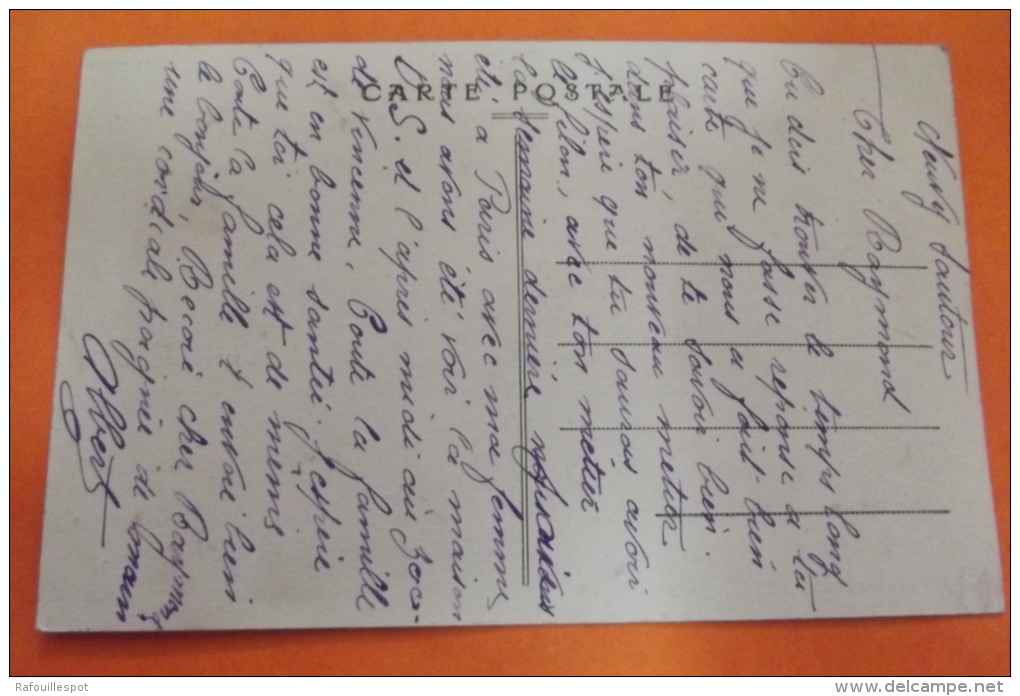 Neuvy Sautour
Cher Raymond
Tu dois trouver le temps long
que je ne fasse reponse a ta
carte qui nous a fait bien
plaisir, de te savoir bien
dans ton nouveau metier
j'espere que tu sauras avoir
le filon, avec ton metier
la semaine dernière
eté a Paris avec ma femme,
nous avons été voir la maison
D. S. et l'après midi au Zoo
de Vincenne, Toute la famille
est en bonne santé j'espère
que toi cela est de meme
Toute la famille t envoie bien
le bonjour, Recoie cher Raymond
une cordiale poignée de main
Albert
CARTE POSTALE
Rafouillespot
www.delcampe.net